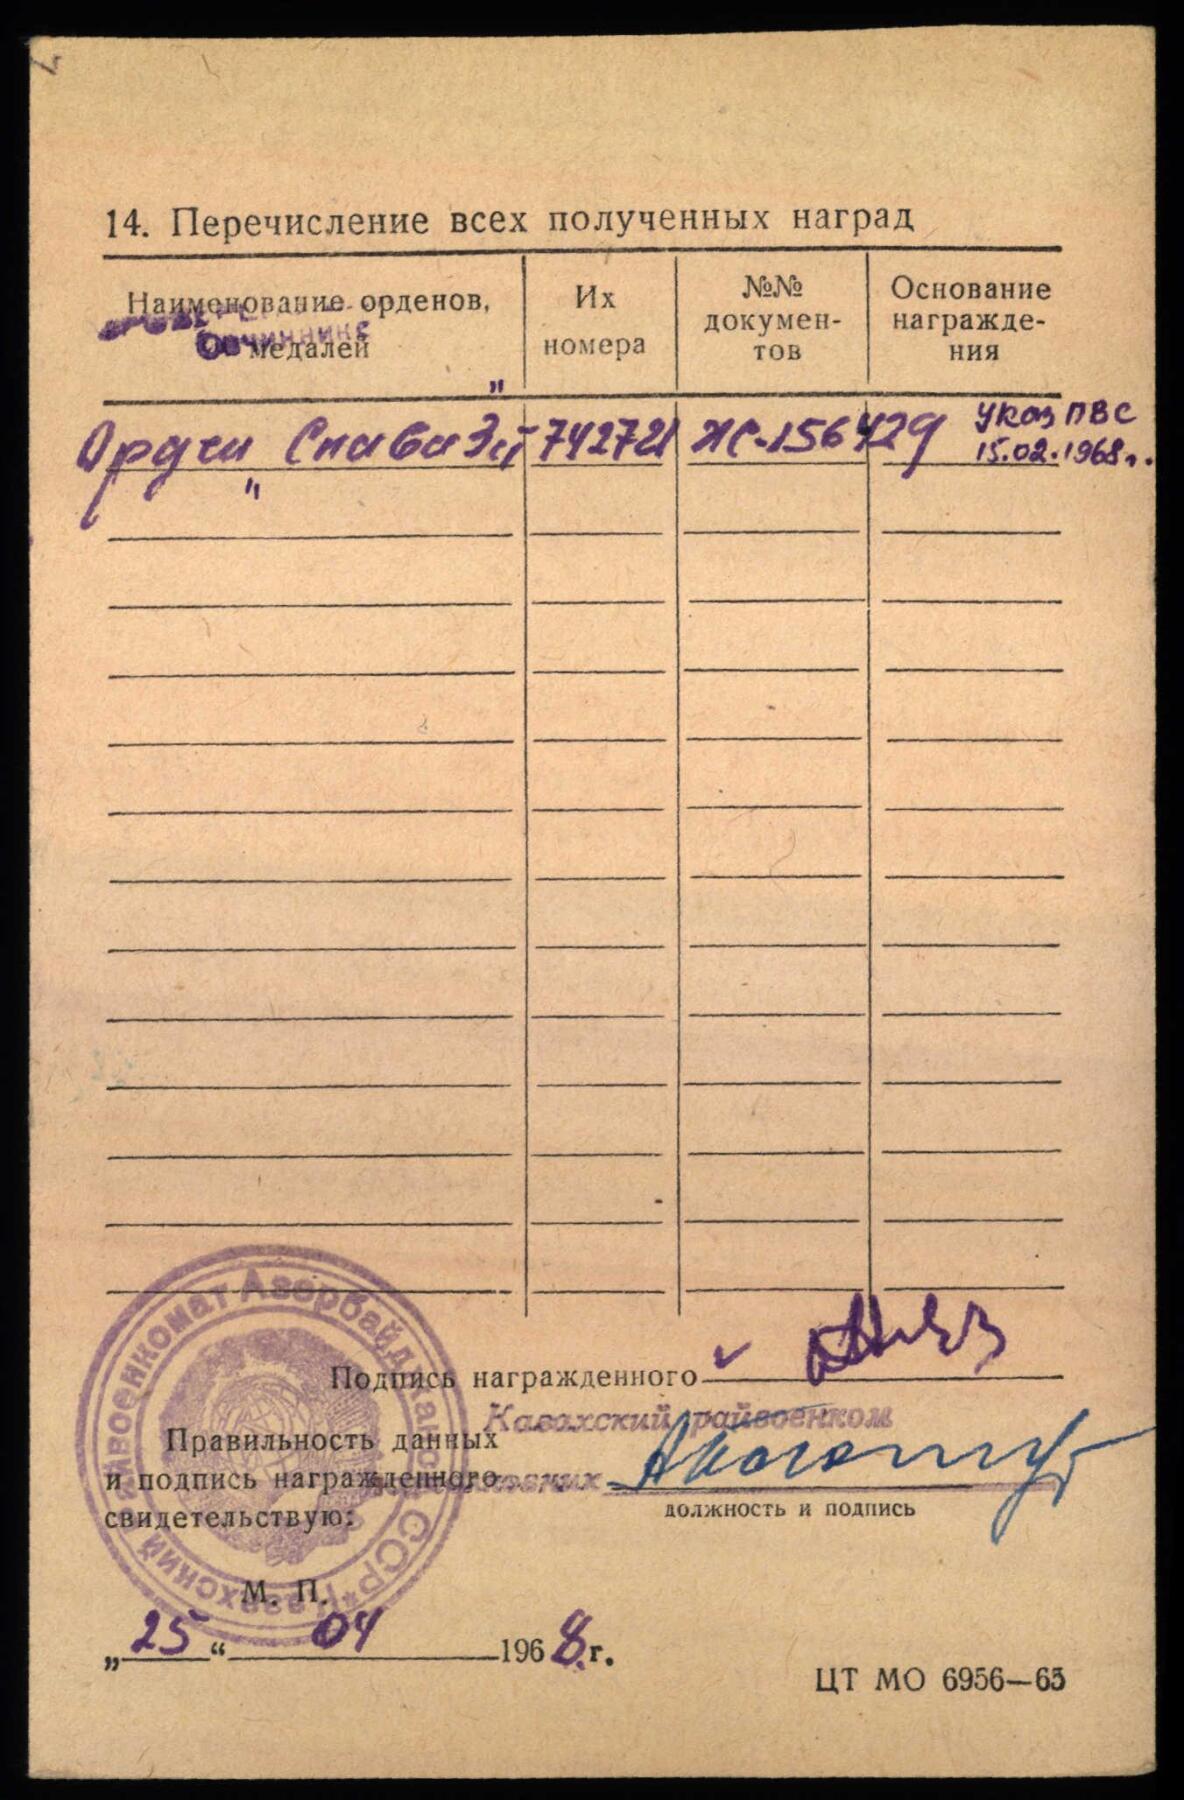 14. Перечисление всех полученных наград
Наименование орденов,
медалей
Их
номера
№№
докумен-
тов
Основание
награжде-
ния
Орден Славы 3й 742721 ЖС-156429 указ ПВС
15.02.1968г.
Подпись награжденного
Казахский райвоенком
Правильность данных
и подпись награжденного
свидетельствую:
должность и подпись
Казахский райвоенкомат Азербайджанской ССР
М. П.
„25“ 04 1968 г.
ЦТ МО 6956—65